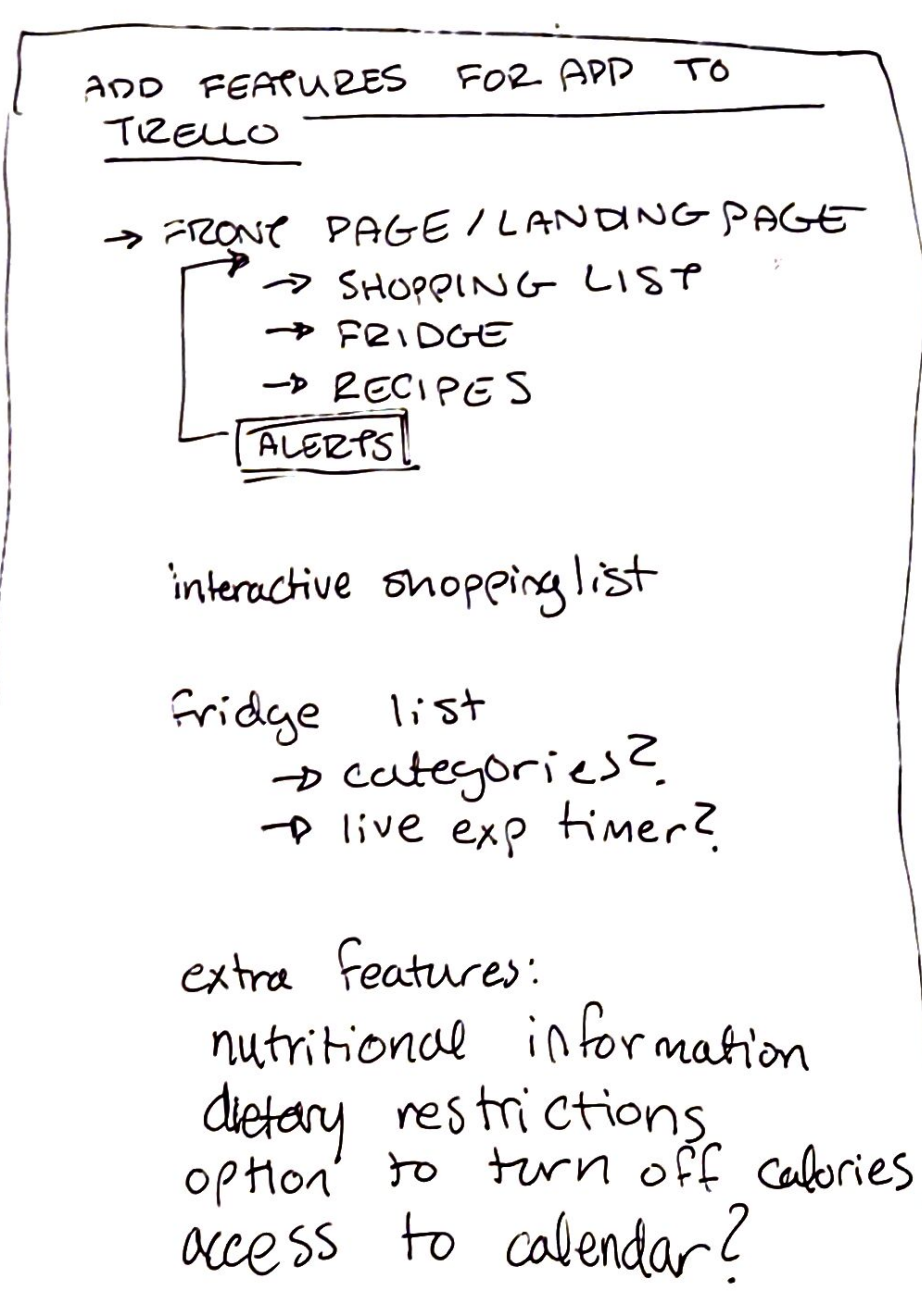 ADD FEATURES FOR APP TO
TRELLO
→ FRONT PAGE / LANDING PAGE
→ SHOPPING LIST
→ FRIDGE
→ RECIPES
ALERTS
interactive shopping list
fridge list
→ categories?
→ live exp timer?
extra features:
nutritional information
dietary restrictions
option to turn off calories
access to calendar?